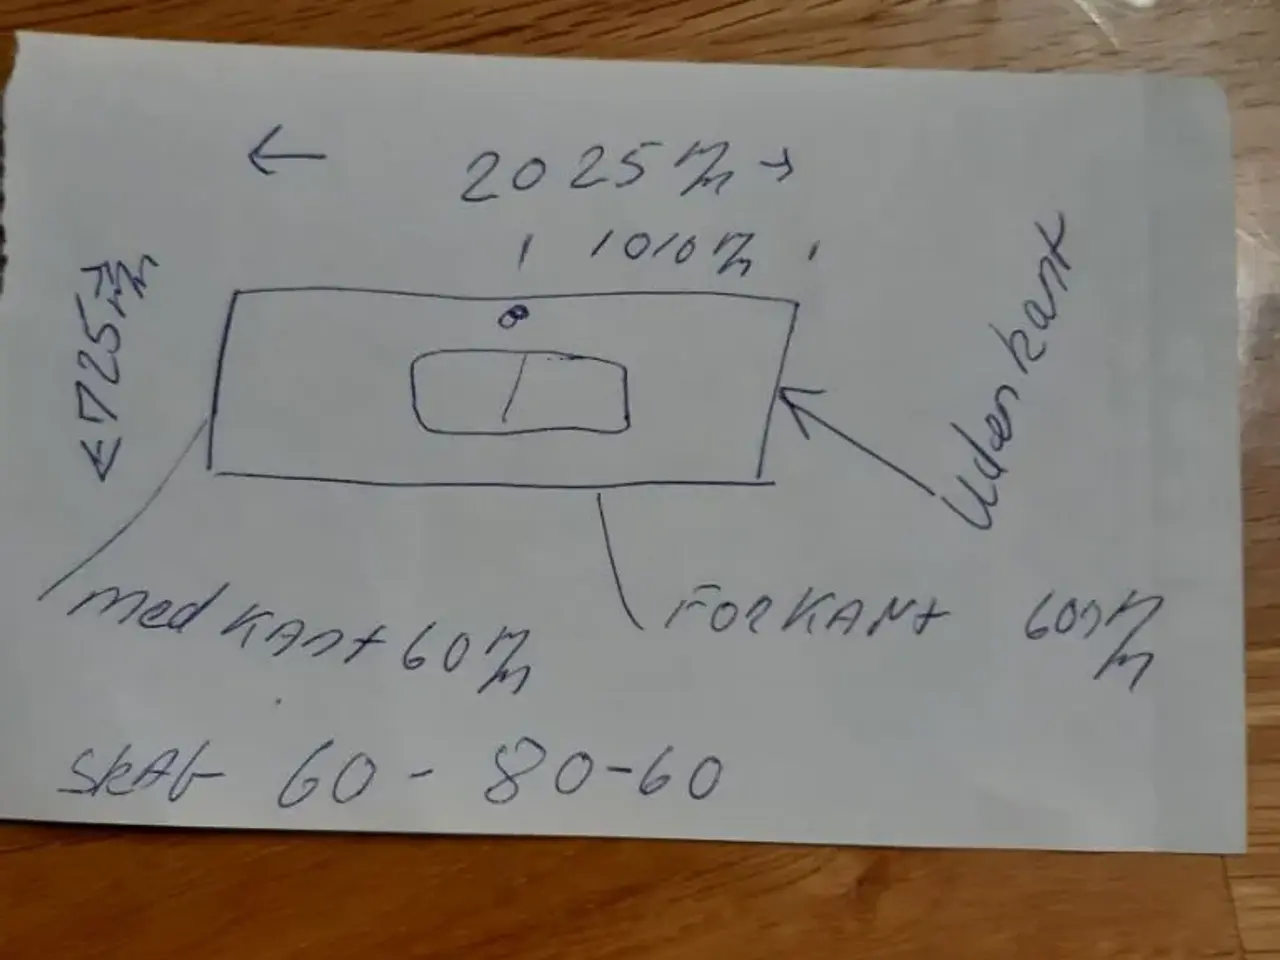 2025 m/m
1010 m/m
725 m/m
uden kant
med KAnt 60 m/m
FORKANt 60 m/m
SKAb 60 - 80-60